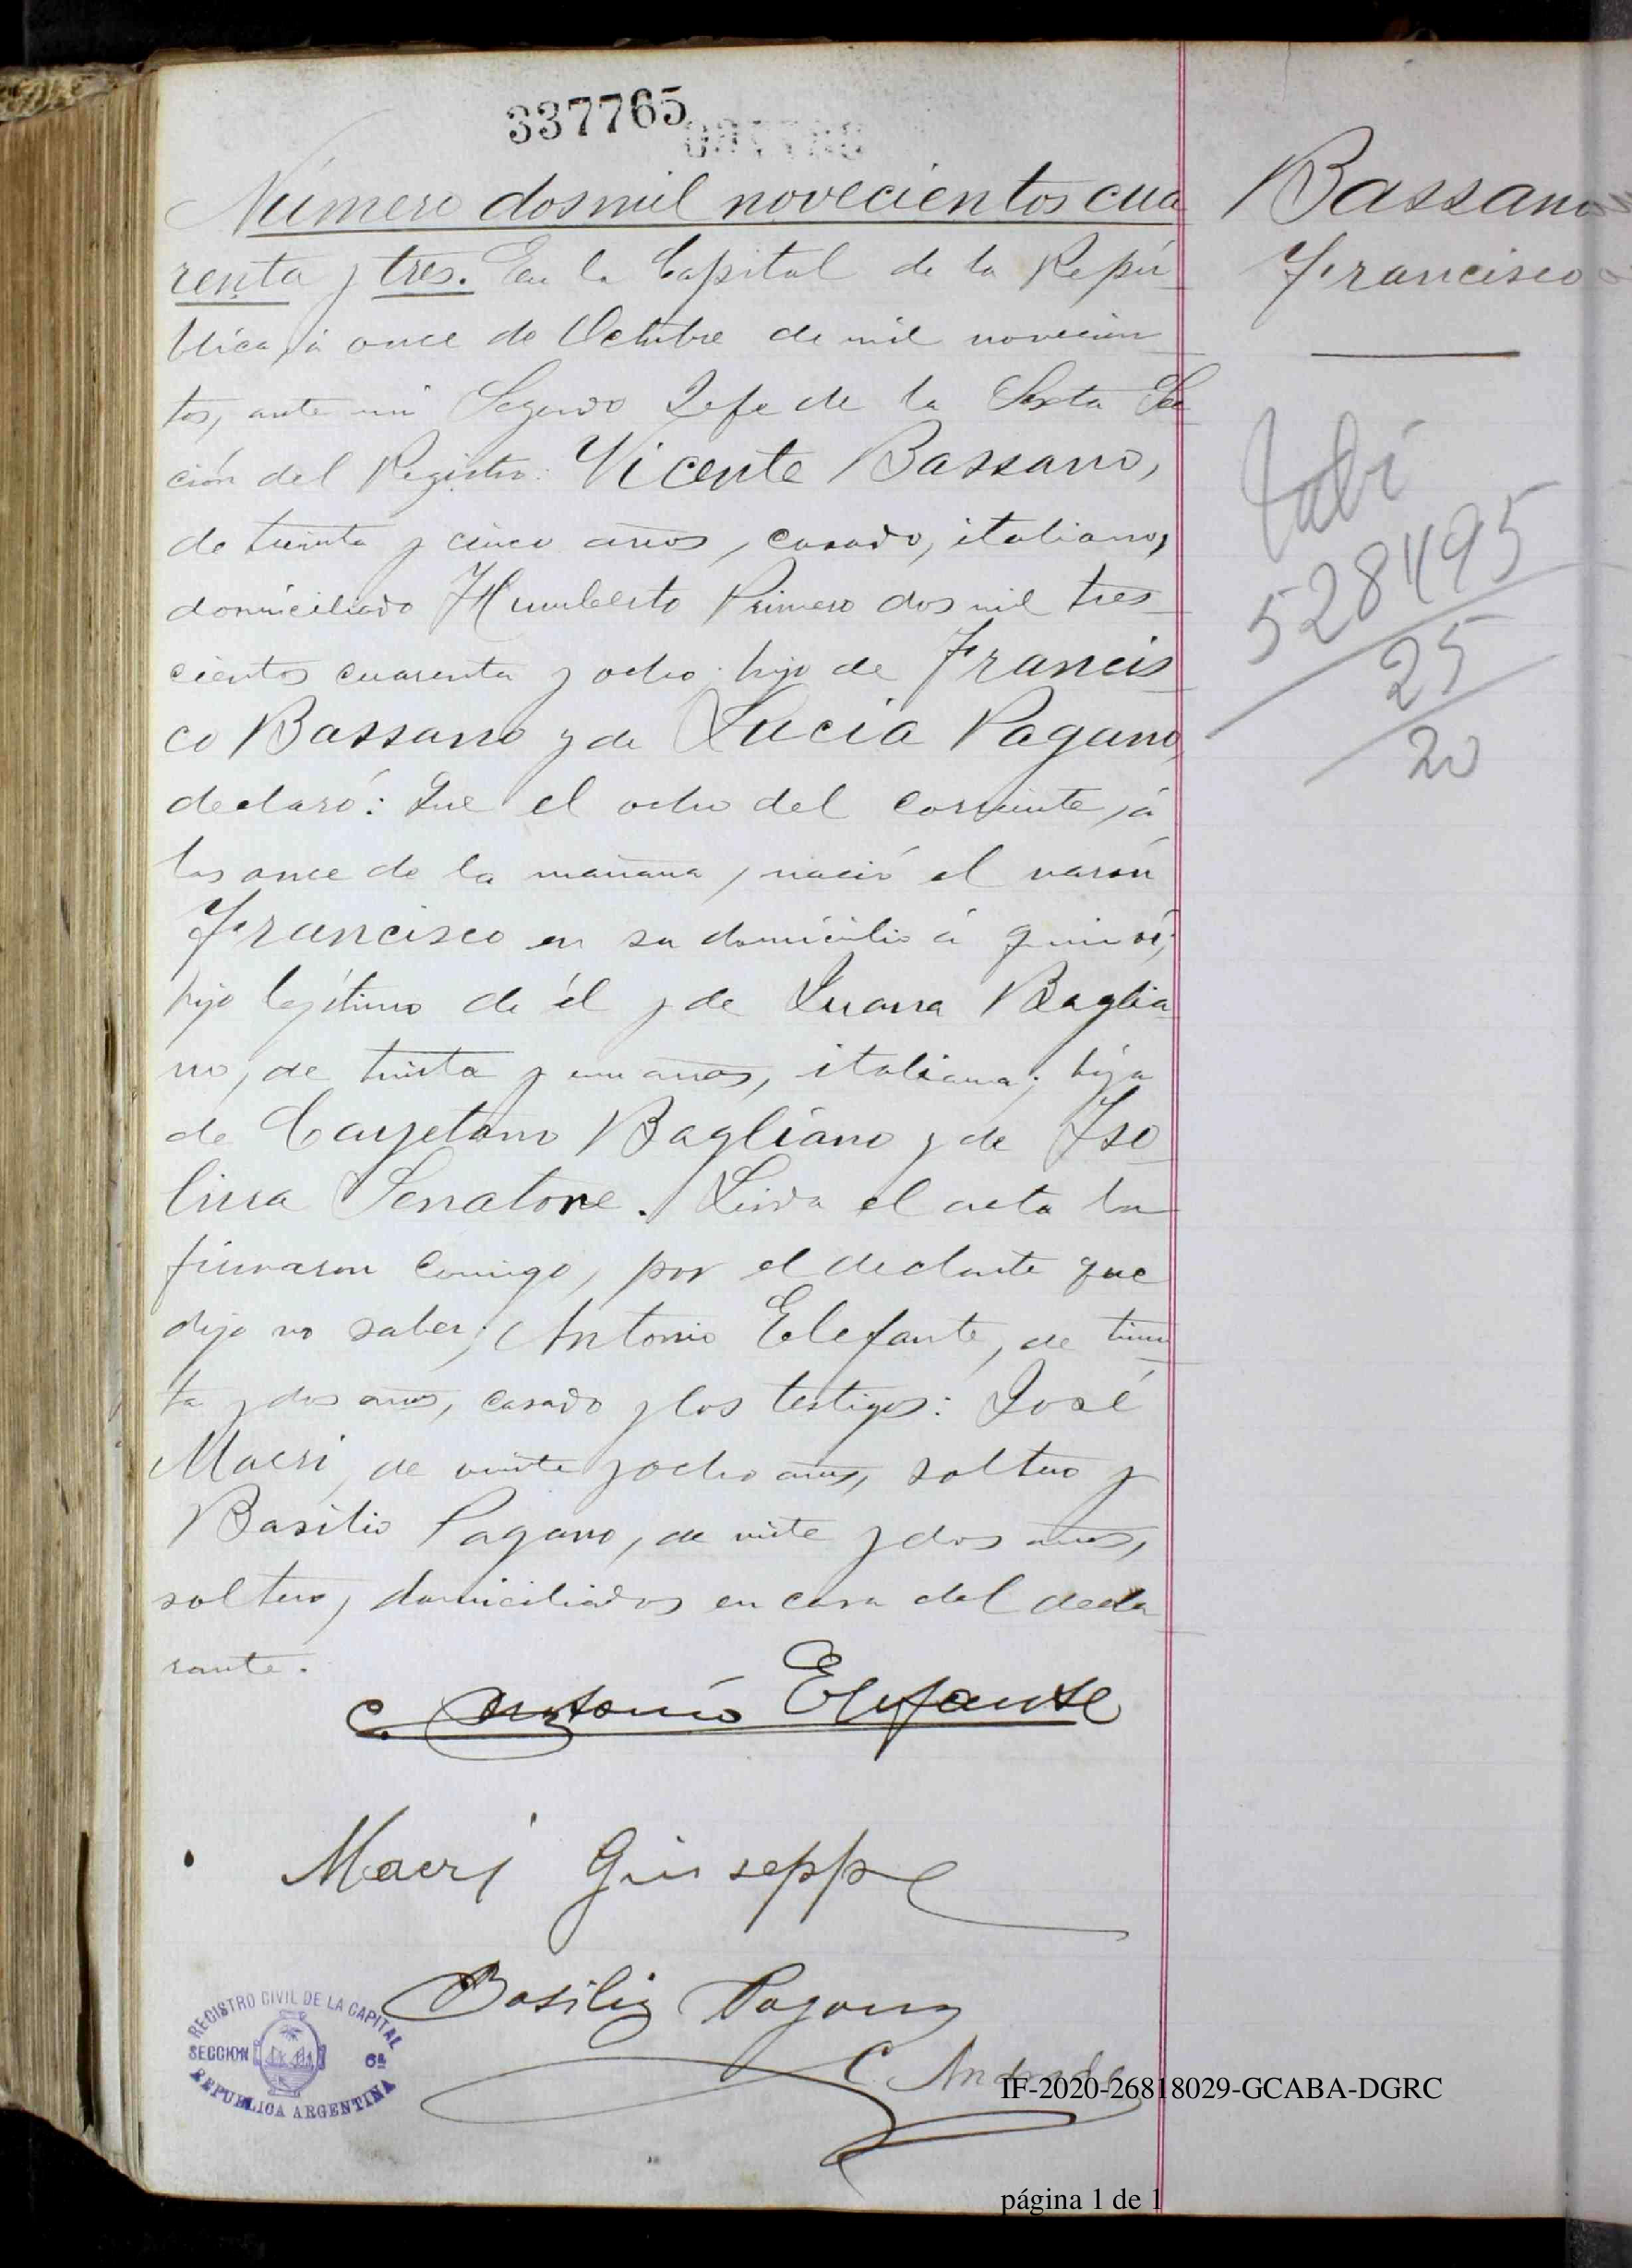 337765
Número dos mil novecientos cua
renta y tres. En la Capital de la Repú-
blica, á once de Octubre de mil novecien-
tos, ante mi Segundo Jefe de la Sexta Sec
ción del Registro: Vicente Bassano,
de treinta y cinco años, casado, italiano,
domiciliado Humberto Primero dos mil tres-
cientos cuarenta y ocho, hijo de Francis-
co Bassano y de Lucia Pagano,
declaró: Que el ocho del corriente, á
las once de la mañana, nació el varón
Francisco en su domicilio á quien ví;
hijo legítimo de él y de Juana Baglia
no, de treinta y un años, italiana; hija
de Cayetano Bagliano y de Iso-
lina Senatore. Leida el acta la
firmaron conmigo, por el declarante que
dijo no saber; Antonio Elefante, de trein-
ta y dos años, casado y los testigos: José
Macri, de veinte y ocho años, soltero y
Basilio Pagano, de veinte y dos años,
soltero, domiciliados en casa del decla
rante.
Antonio Elefante
Macri Giuseppe
Basilio Pagano
C. Andrade
REGISTRO CIVIL DE LA CAPITAL
SECCION 6ª
REPUBLICA ARGENTINA
IF-2020-26818029-GCABA-DGRC
página 1 de 1
Bassano
Francisco
528495
25
20